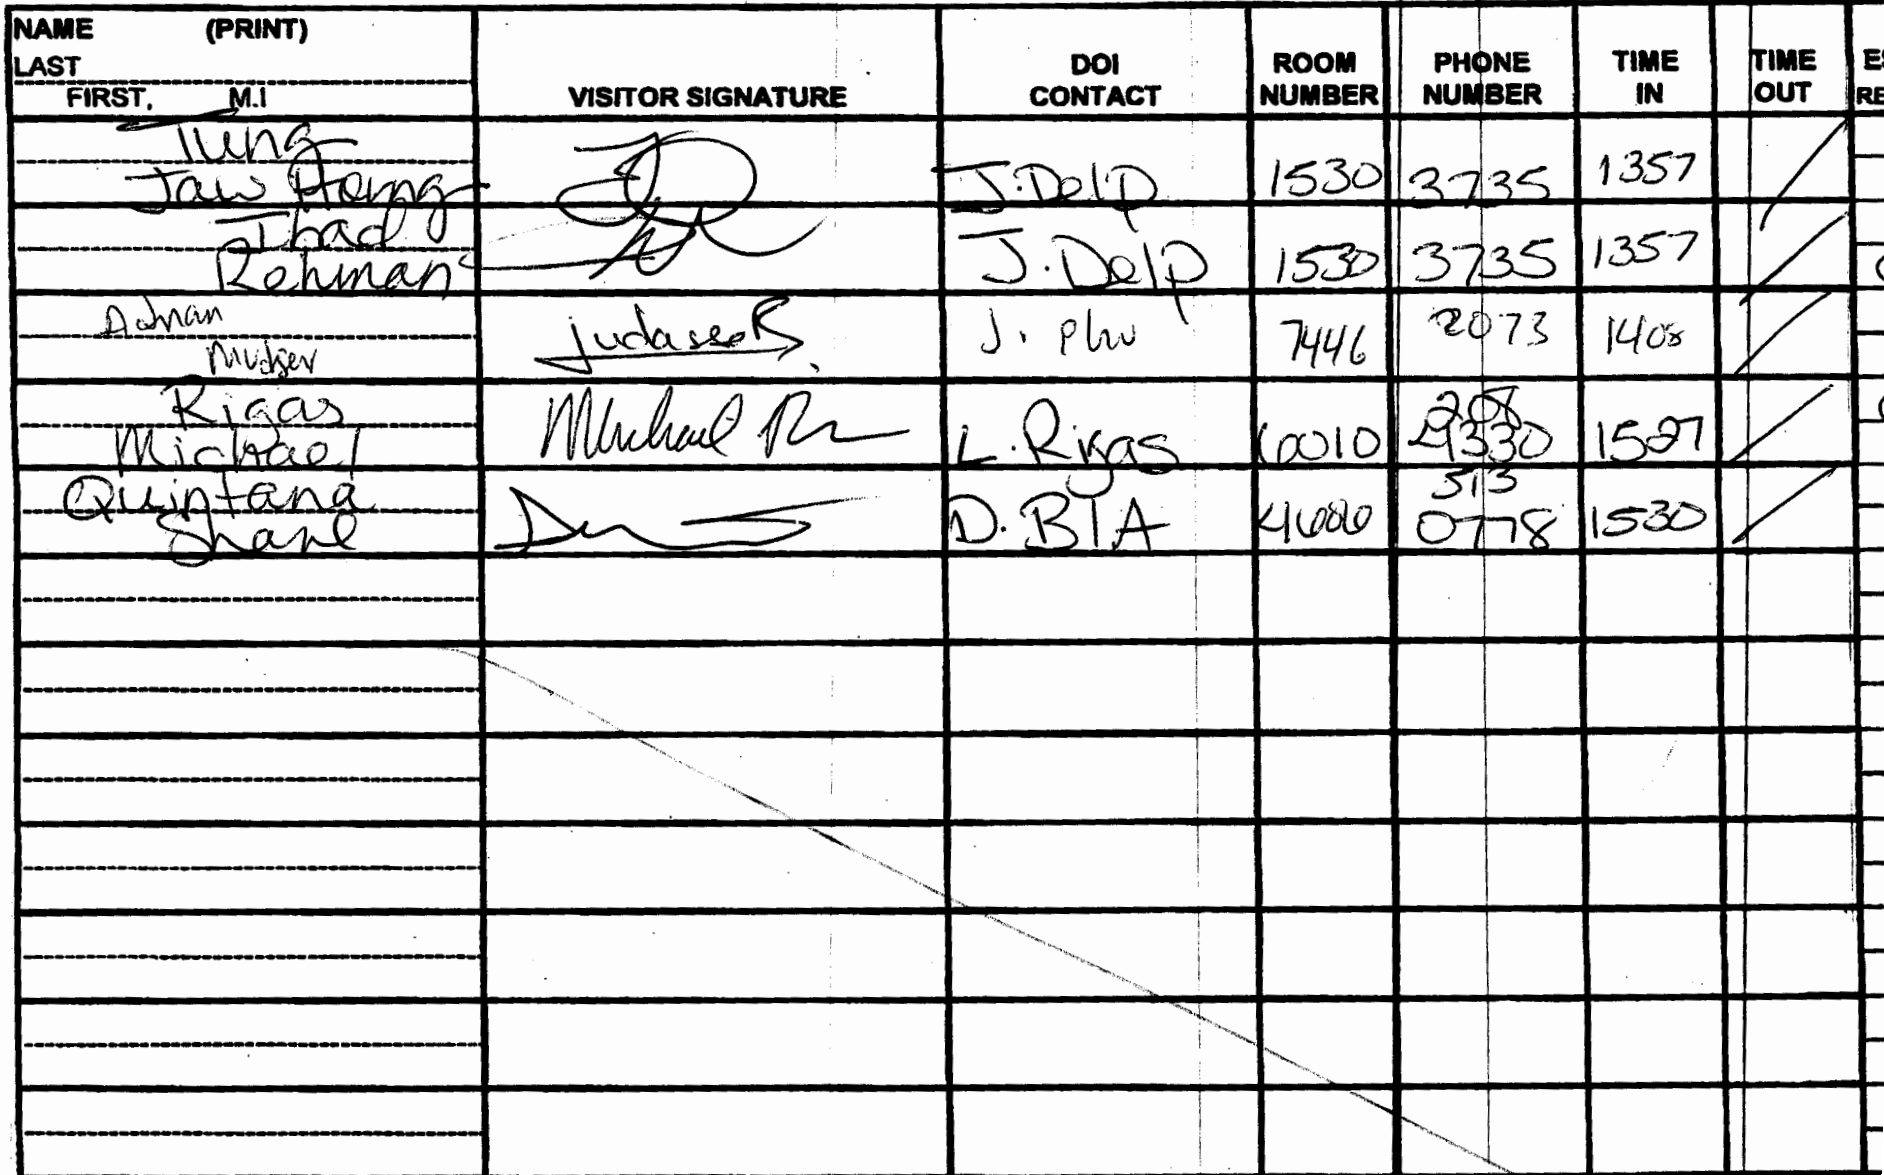 NAME (PRINT)
LAST
FIRST, M.I
VISITOR SIGNATURE
DOI
CONTACT
ROOM
NUMBER
PHONE
NUMBER
TIME
IN
TIME
OUT
Tung
Jaw
J. Delp 1530 3735 1357
Rehman
J. Delp 1530 3735 1357
Adnan
J. 7446 2073 1408
Rigas
Michael
Michael
L. Rigas 1527
Quintana
Shane
D. BIA 513
0778 1530